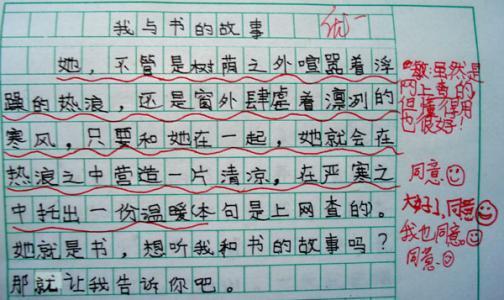 我与书的故事
优一
她，不管是树荫之外喧嚣着浮
躁的热浪，还是窗外肆虐着凛冽的
寒风，只要和她在一起，她就会在
热浪之中营造一片清凉，在严寒之
中托出一份温暖(本句是上网查的。
她就是书，想听我和书的故事吗？
那就让我告诉你吧。
敏:虽然是
网上查的
但懂得用
也很好！
同意
太好了，同意
我也同意。
同意。